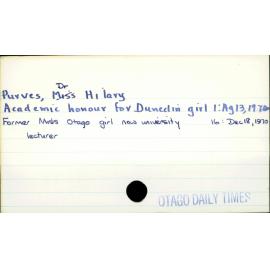 Dr
Purves, Miss Hilary
Academic honour for Dunedin girl 1: Ag 13, 1970
Former Miss Otago girl now university 16: Dec 18, 1970
lecturer
OTAGO DAILY TIMES